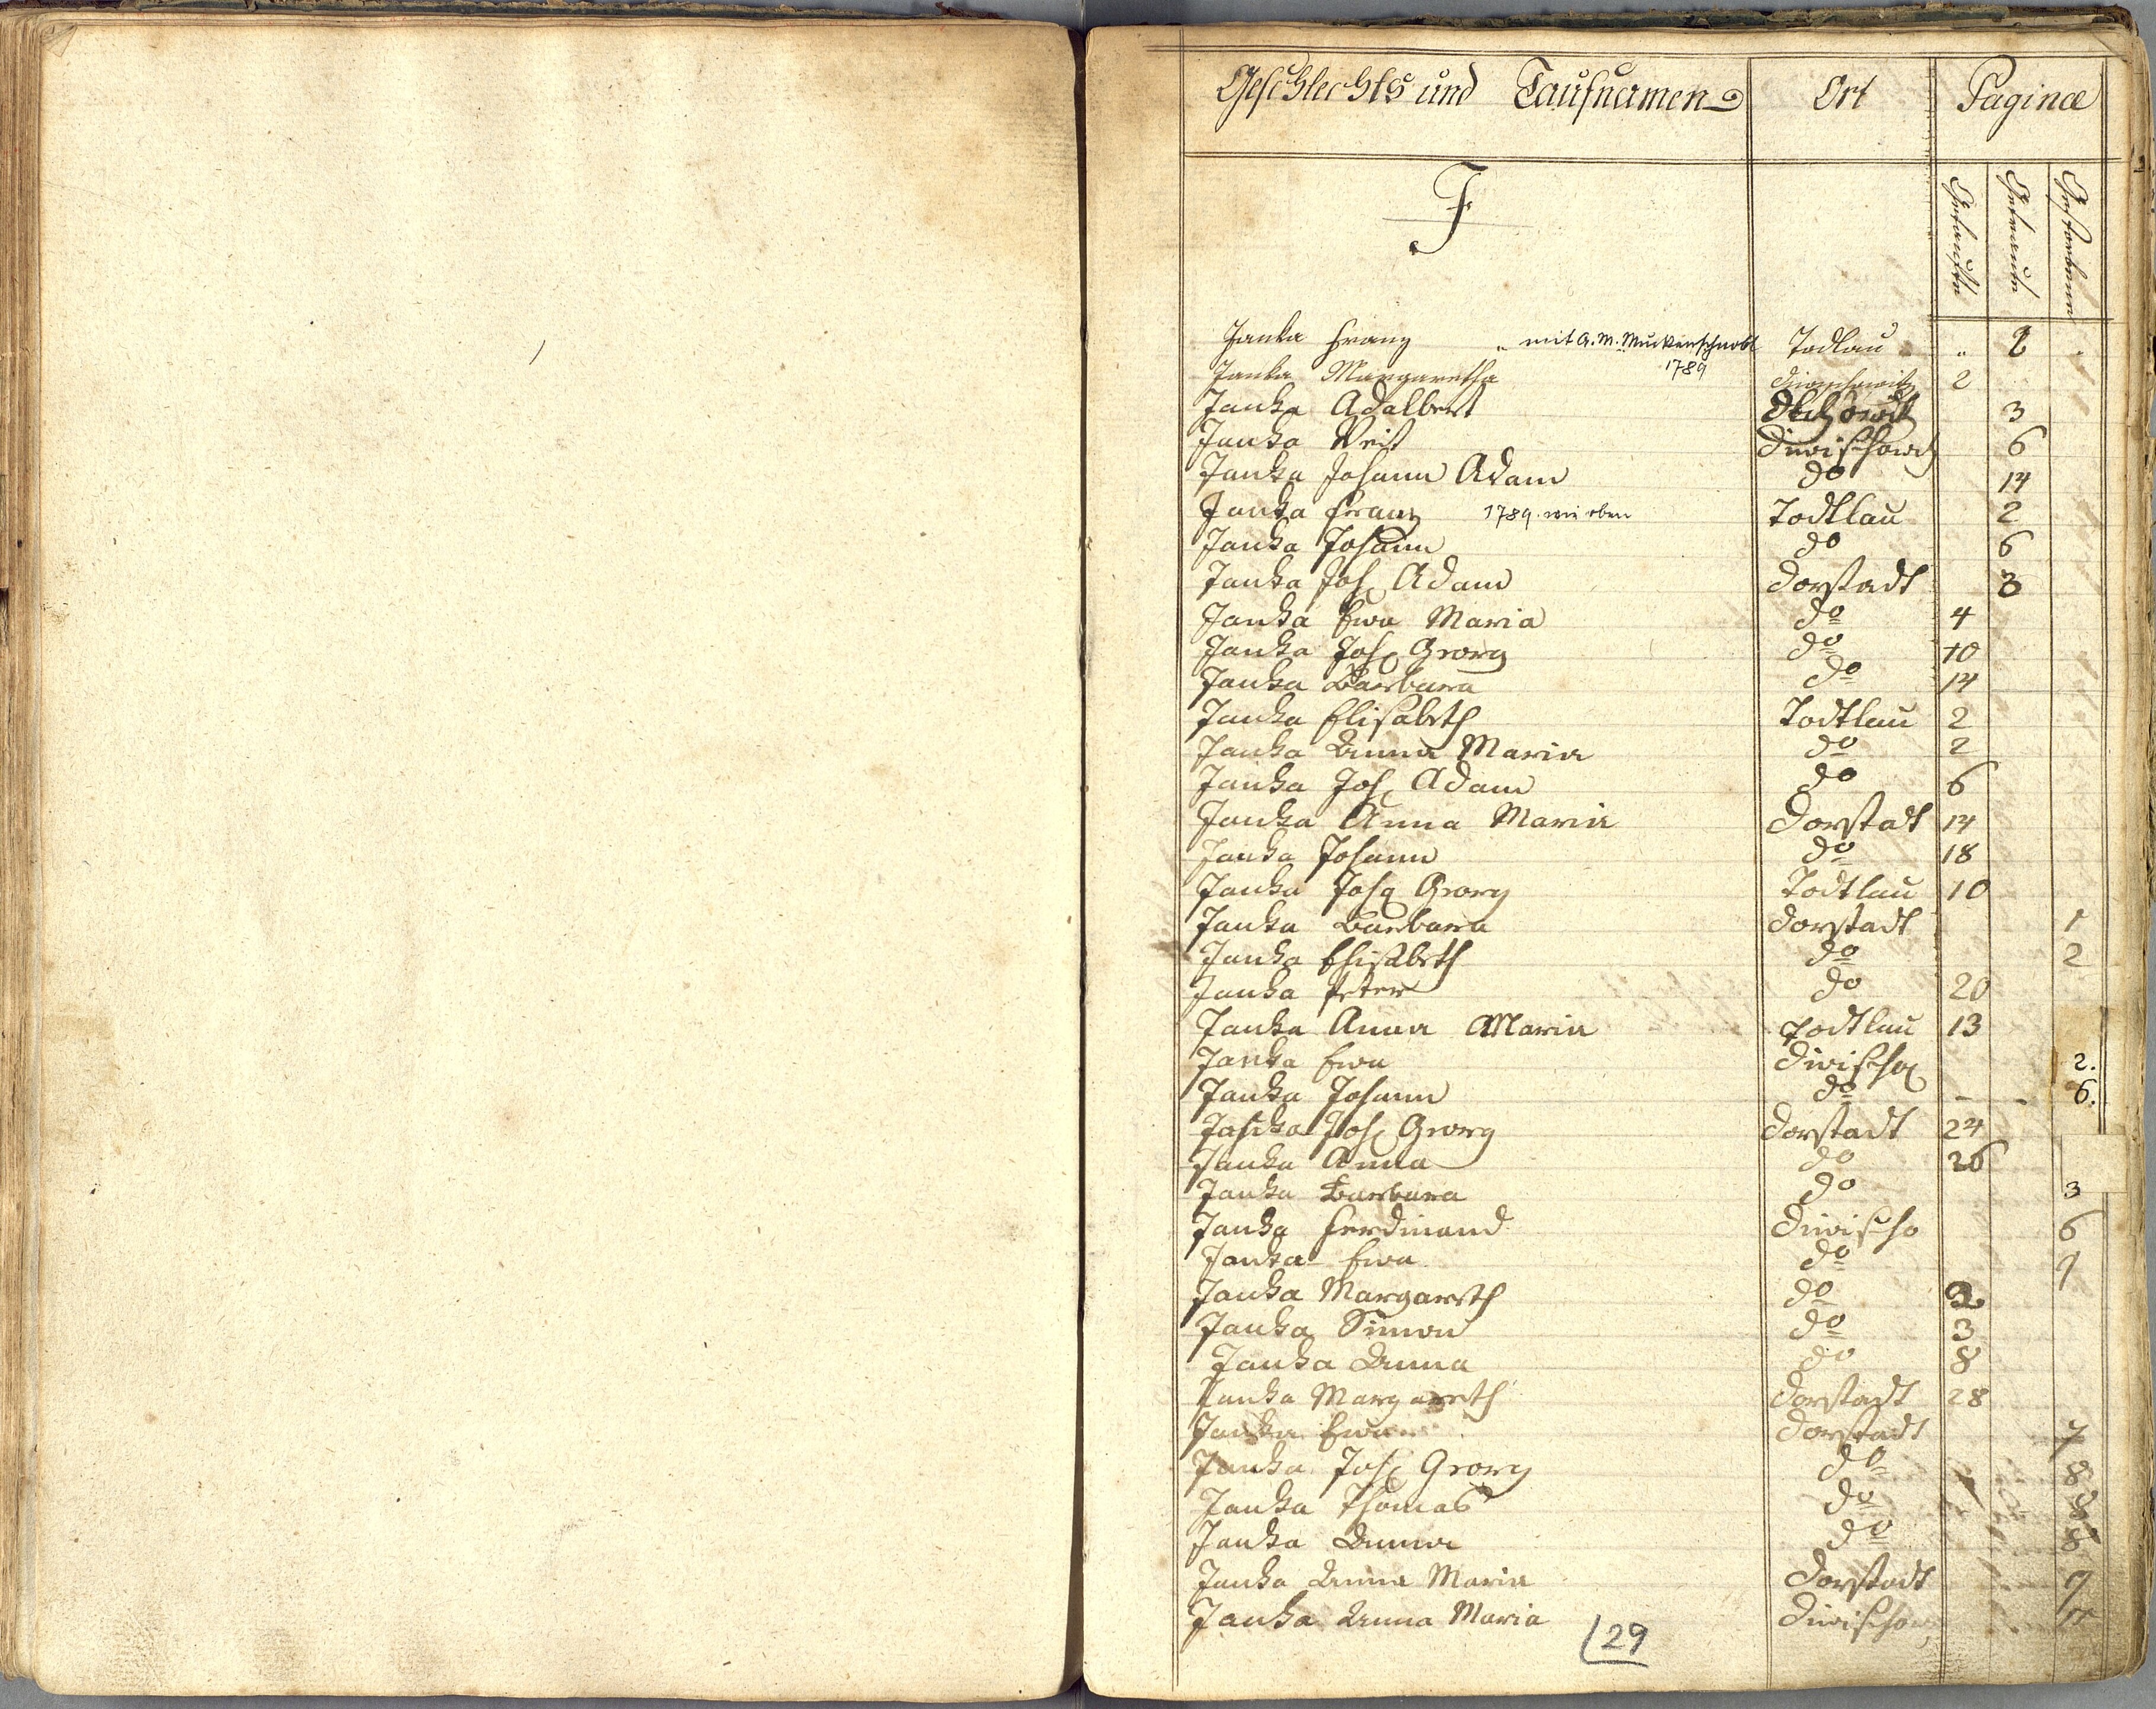 Geschlechts und Taufnamen Ort Paginæ
J
Getauften Getrauten Gestorbenen
Janka Franz " mit A. M. Muckenschnabl Todlau " 2 "
1789
Janka Margaretha Diwischowitz 2
Janka Adalbert 3
Janka Veit Diwischowitz 6
Janka Johann Adam do 14
Janka Franz 1789. wie oben Todtlau 2
Janka Johann do 6
Janka Joh Adam Dorstadt 3
Janka Ewa Maria do 4
Janka Joh Georg do 10
Janka Barbara do 14
Janka Elisabeth Todtlau 2
Janka Anna Maria do 2
Janka Joh Adam do 6
Janka Anna Maria Dorstadt 14
Janka Johann do 18
Janka Joh Georg Todtlau 10
Janka Barbara Dorstadt 1
Janka Elisabeth do 2
Janka Peter do 20
Janka Anna Maria Todtlau 13
Janka Ewa Diwischo 2.
Janka Johann do - - 6.
Janka Joh Georg Dorstadt 24
Janka Anna do 26
Janka Barbara do 3
Janka Ferdinand Diwischo 6
Janka Ewa do
Janka Margareth do 2
Janka Simon do 3
Janka Anna do 8
Janka Margareth Dorstadt 28
Janka Ewa Dorstadt 7
Janka Joh Georg do 8
Janka Thomas do 8
Janka Anna do 8
Janka Anna Maria Dorstadt 9
Janka Anna Maria Diwischow
29